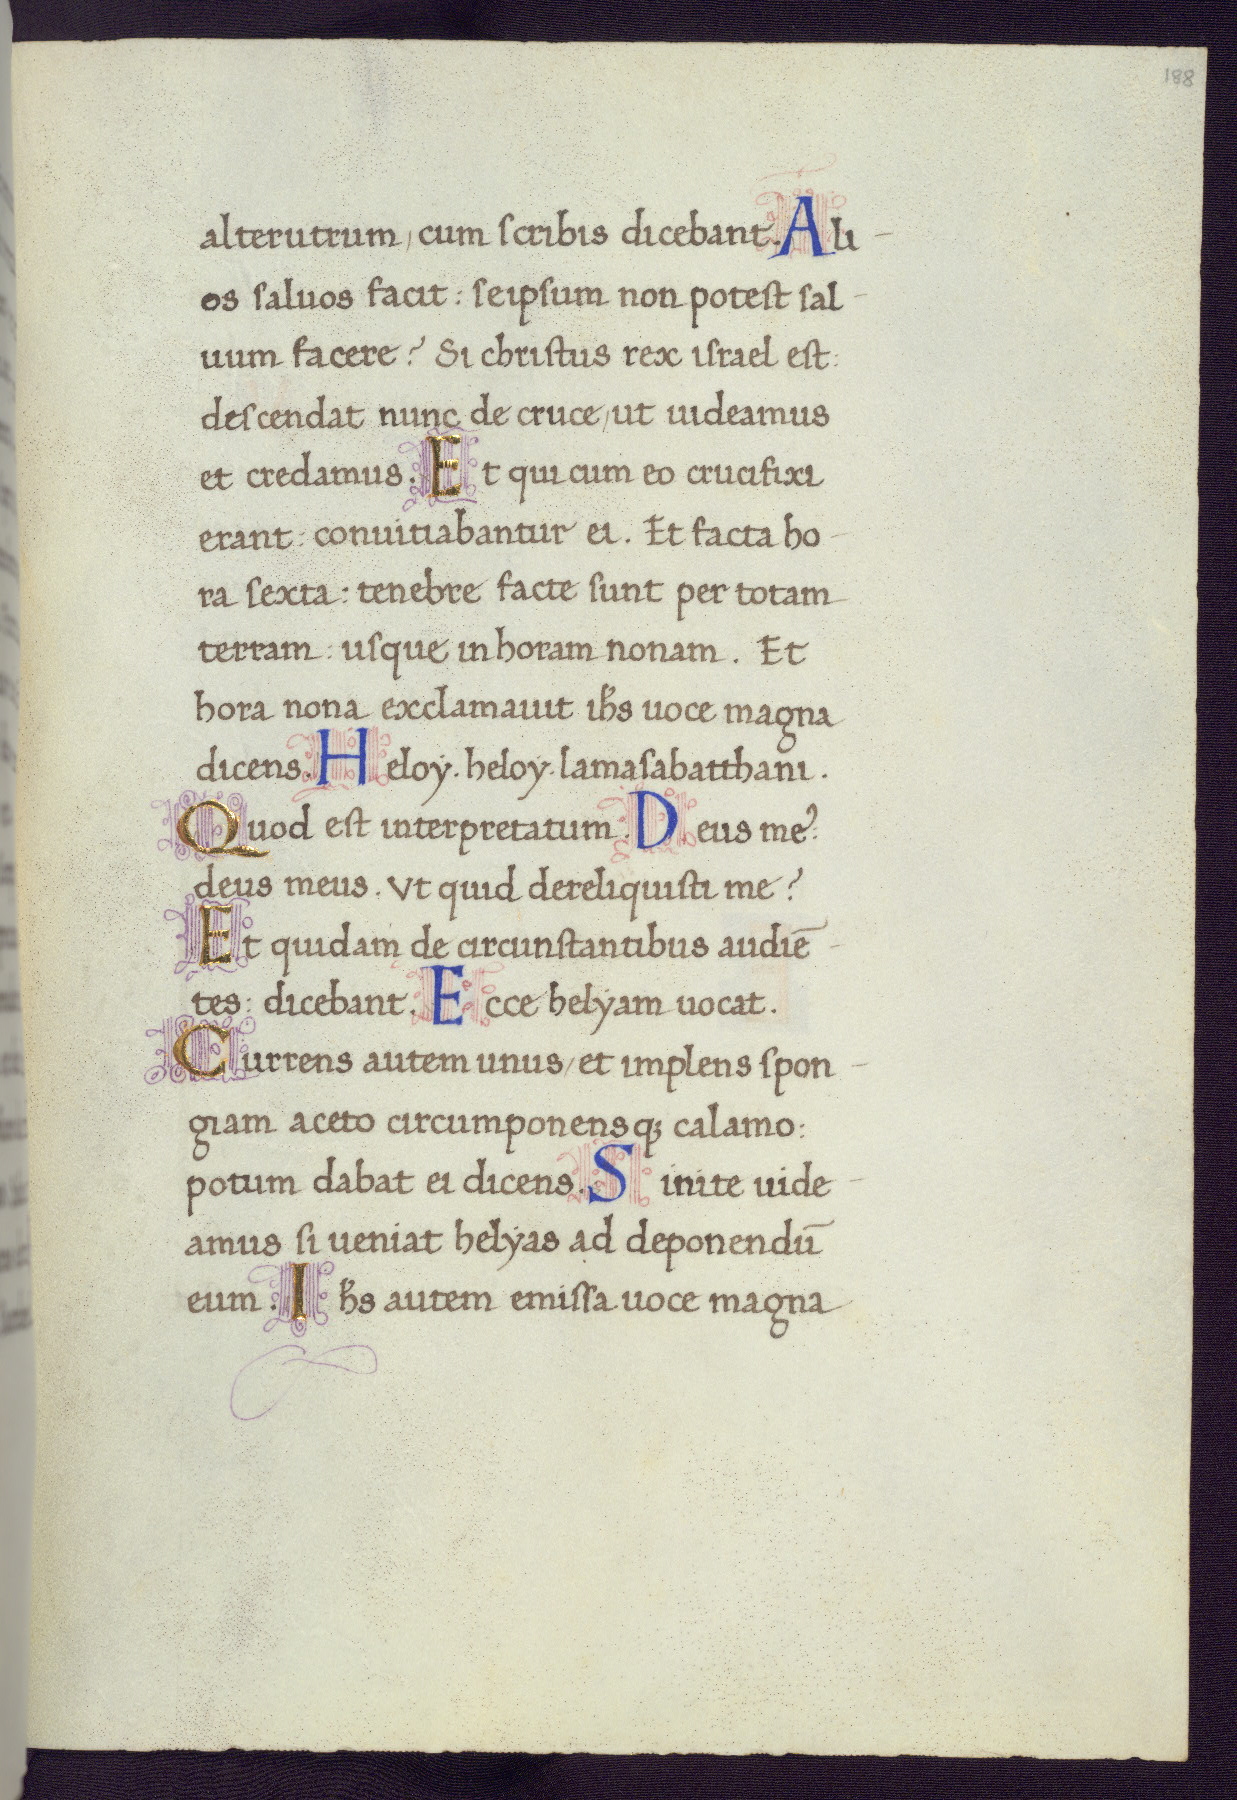 188
alterutrum, cum scribis dicebant. Ali-
os saluos facit: seipsum non potest sal-
uum facere? Si christus rex israel est:
descendat nunc de cruce, ut uideamus
et credamus. Et qui cum eo crucifixi
erant: conuitiabantur ei. Et facta ho-
ra sexta: tenebre facte sunt per totam
terram: usque in horam nonam. Et
hora nona exclamauit ihs̄ uoce magna
dicens. Heloẏ. heloẏ. lamasabatthani.
Quod est interpretatum. Deus meꝰ:
deus meus. Vt quid dereliquisti me?
Et quidam de circunstantibus audiē-
tes: dicebant. Ecce helẏam uocat.
Currens autem unus, et implens spon-
giam aceto circumponensqꝫ calamo:
potum dabat ei dicens. Sinite uide-
amus si ueniat helẏas ad deponendū
eum. Ihs̄ autem emissa uoce magna